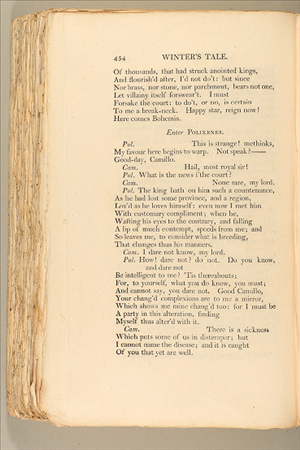 454 WINTER'S TALE.
Of thousands, that had struck anointed kings,
And flourish'd after, I'd not do't: but since
Nor brass, nor stone, nor parchment, bears not one,
Let villainy itself forswear't. I must
Forsake the court: to do't, or no, is certain
To me a break-neck. Happy star, reign now!
Here comes Bohemia.
Enter POLIXENES.
Pol. This is strange! methinks,
My favour here begins to warp. Not speak?——
Good-day, Camillo.
Cam. Hail, most royal sir!
Pol. What is the news i'the court?
Cam. None rare, my lord.
Pol. The king hath on him such a countenance,
As he had lost some province, and a region,
Lov'd as he loves himself: even now I met him
With customary compliment; when he,
Wafting his eyes to the contrary, and falling
A lip of much contempt, speeds from me; and
So leaves me, to consider what is breeding,
That changes thus his manners.
Cam. I dare not know, my lord.
Pol. How! dare not? do not. Do you know,
and dare not
Be intelligent to me? 'Tis thereabouts;
For, to yourself, what you do know, you must;
And cannot say, you dare not. Good Camillo,
Your chang'd complexions are to me a mirror,
Which shows me mine chang'd too: for I must be
A party in this alteration, finding
Myself thus alter'd with it.
Cam. There is a sickness
Which puts some of us in distemper; but
I cannot name the disease; and it is caught
Of you that yet are well.